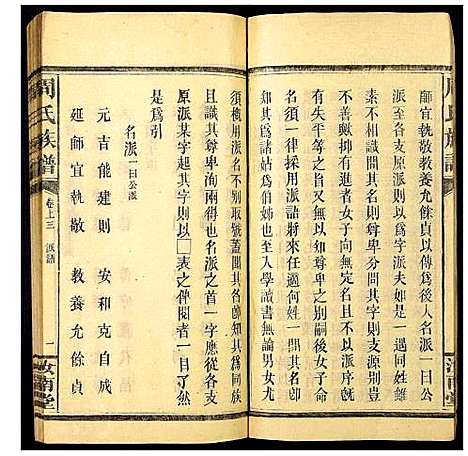 周氏族譜
師宜執敬教養允餘貞以傳為後人名派一曰公
派至各支原派則以為字派夫如是一遇同姓雖
素不相識問其名則尊卑分問其字則原派某某
不善歟抑有進者女子向無名派不以派序既
有失平等之旨且如尊卑之別嗣後女子命
名須一律採用派語將來在適何姓一一問
知其為諸姑為伯姊也至入學讀書無論男女
須概用派名不別取號蓋聞其名一則知其為同族
且識其尊卑洵兩得也名派之首一字應從各支
原派某字起其字則以□表之俾閱者一目了然
是為引
名派一曰公派
元吉能建則 安和克自成
延師宜執敬 教養允餘貞
周氏族譜
卷上三 派語
一
汝南堂